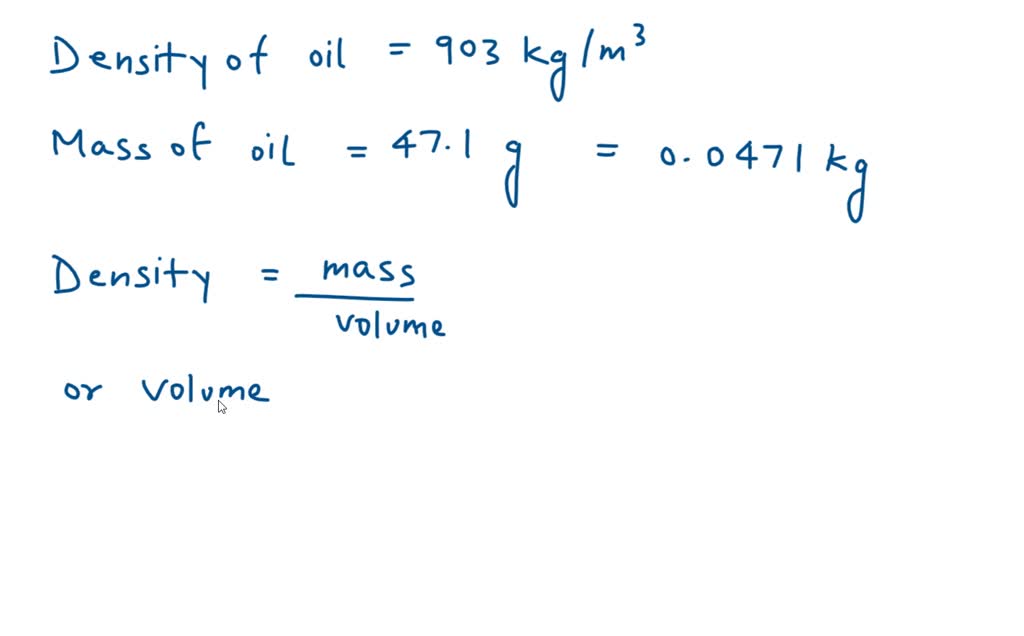 Density of oil = 903 kg/m³
Mass of oil = 47.1 g = 0.0471 kg
Density = mass
volume
or volume